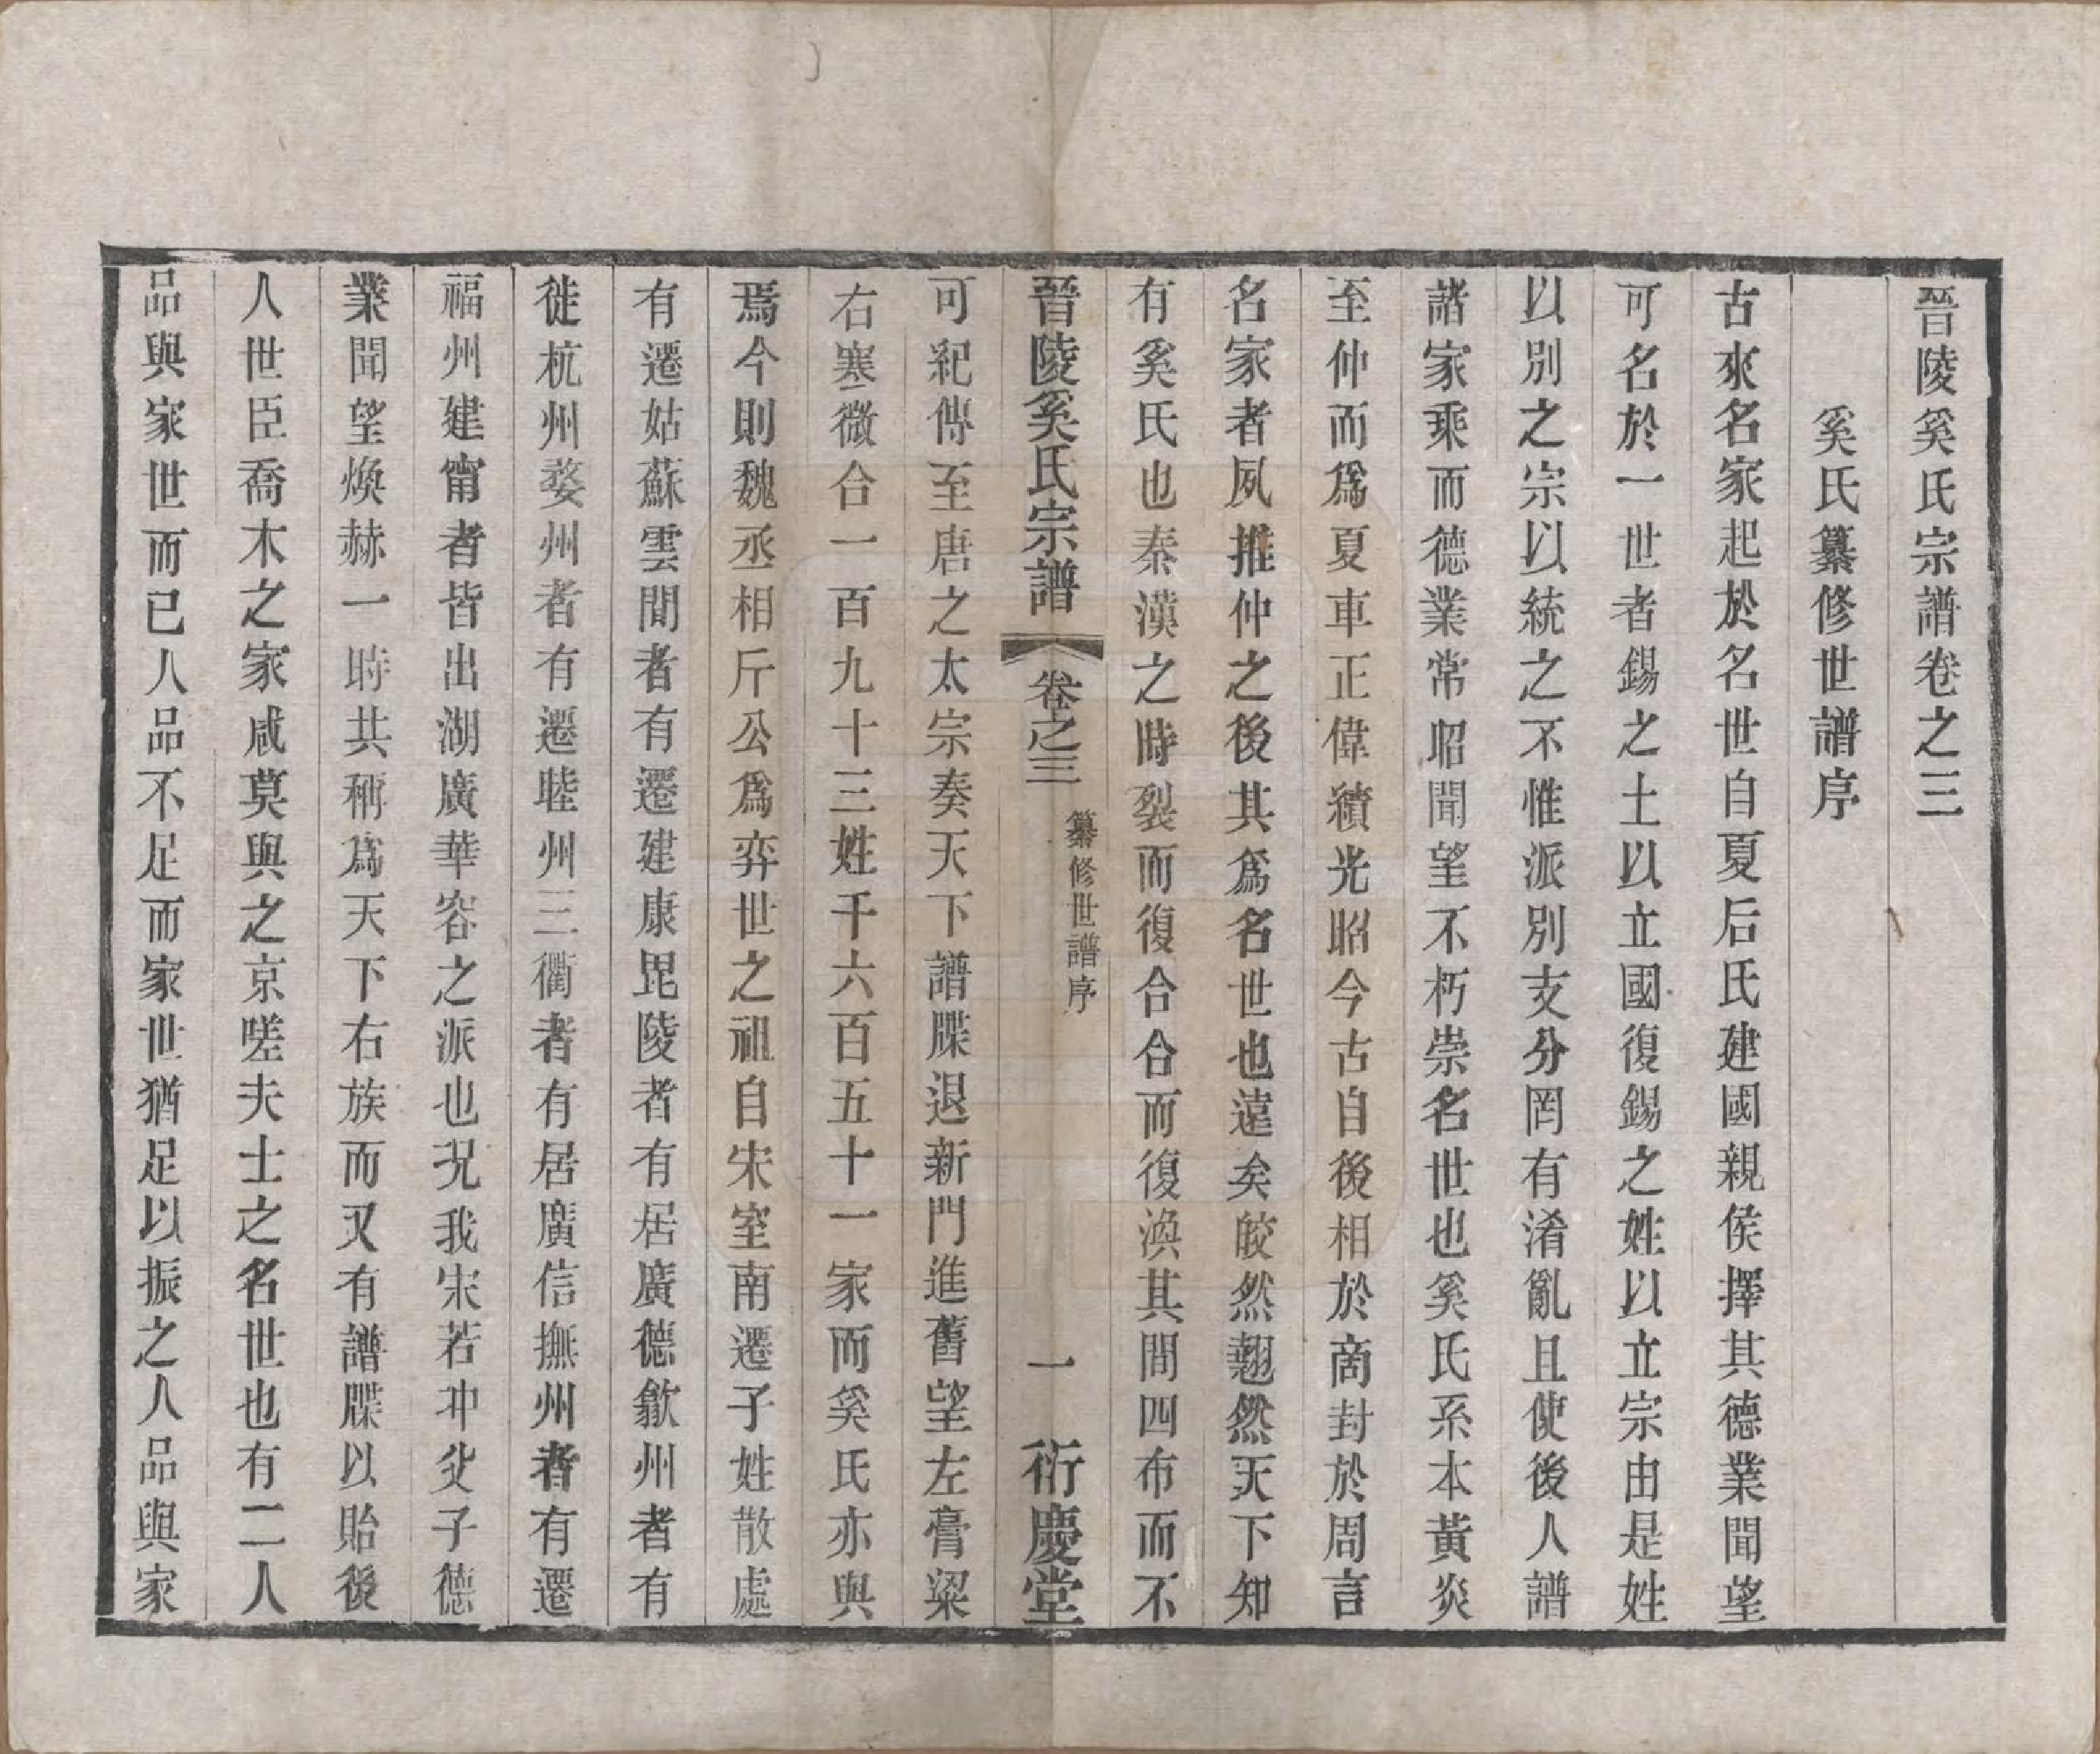 晉陵奚氏宗譜卷之三
奚氏纂修世譜序
古來名家起於名世自夏后氏建國親侯擇其德業聞望
可名於一世者錫之土以立國復錫之姓以立宗由是姓
以別之宗以統之不惟派別支分罔有淆亂且使後人譜
諸家乘而德業常昭聞望不朽崇名世也奚氏系本黃炎
至仲而爲夏車正偉績光昭今古自後相於商封於周言
名家者夙推仲之後其爲名世也遠矣皎然翹然天下知
有奚氏也秦漢之時裂而復合合而復渙其間四布而不
晉陵奚氏宗譜
卷之三
纂修世譜序
一
衍慶堂
可紀傳至唐之太宗奏天下譜牒退新門進舊望左膏粱
右寒微合一百九十三姓千六百五十一家而奚氏亦與
焉今則魏丞相斤公爲弈世之祖自宋室南遷子姓散處
有遷姑蘇雲間者有遷建康毘陵者有居廣德歙州者有
徙杭州婺州者有遷睦州三衢者有居廣信撫州者有遷
福州建甯者皆出湖廣華容之派也況我宋若冲父子德
業聞望煥赫一時共稱爲天下右族而又有譜牒以貽後
人世臣喬木之家咸莫與之京嗟夫士之名世也有二人
品與家世而已人品不足而家世猶足以振之人品與家